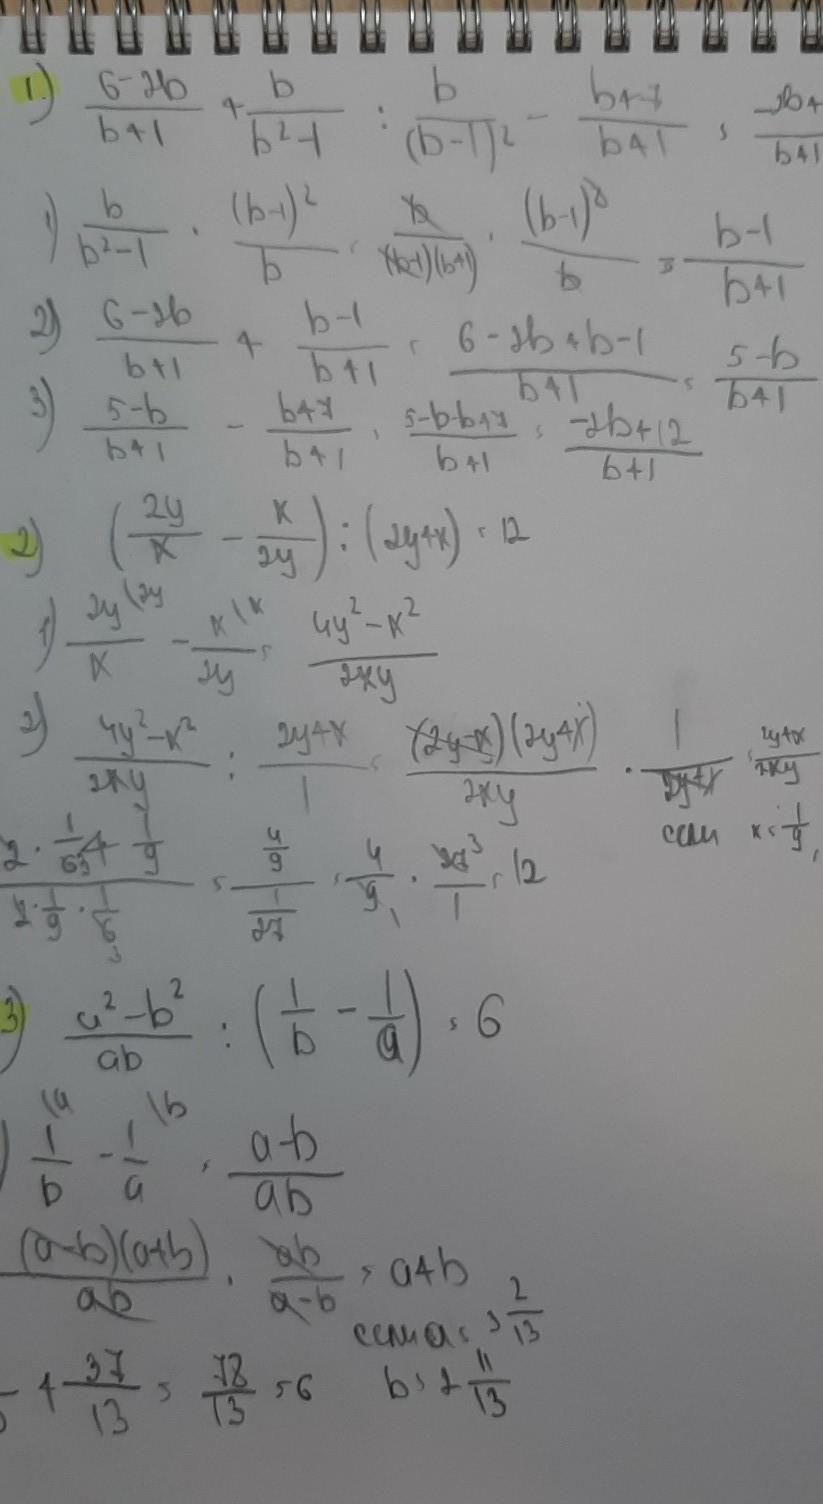 1) (6-2b)/(b+1) + b/(b²-1) : b/(b-1)² - (b+7)/(b+1) = (-2b+)/(b+1)
1) b/(b²-1) · (b-1)²/b = b/((b-1)(b+1)) · (b-1)²/b = (b-1)/(b+1)
2) (6-2b)/(b+1) + (b-1)/(b+1) = (6-2b+b-1)/(b+1) = (5-b)/(b+1)
3) (5-b)/(b+1) - (b+7)/(b+1) = (5-b-b+7)/(b+1) = (-2b+12)/(b+1)
2) (2y/x - x/2y) : (2y+x) = 12
1) 2y\2y/x - x\x/2y = (4y²-x²)/2xy
2) (4y²-x²)/2xy : (2y+x)/1 = (2y-x)(2y+x)/2xy · 1/(2y+x) = (2y+x)/2xy
если x=1/9,
(2·1/6 3 + 1/9)/(2·1/9·1/6 3) = (4/9)/(1/27) = 4/9 1 · 27 3/1 = 12
3) (a²-b²)/ab : (1/b - 1/a) = 6
) 1/b \a - 1/a \b = (a-b)/ab
(a-b)(a+b)/ab · ab/(a-b) = a+b
если a=3 2/13
+ 37/13 = 78/13 = 6 b=2 11/13